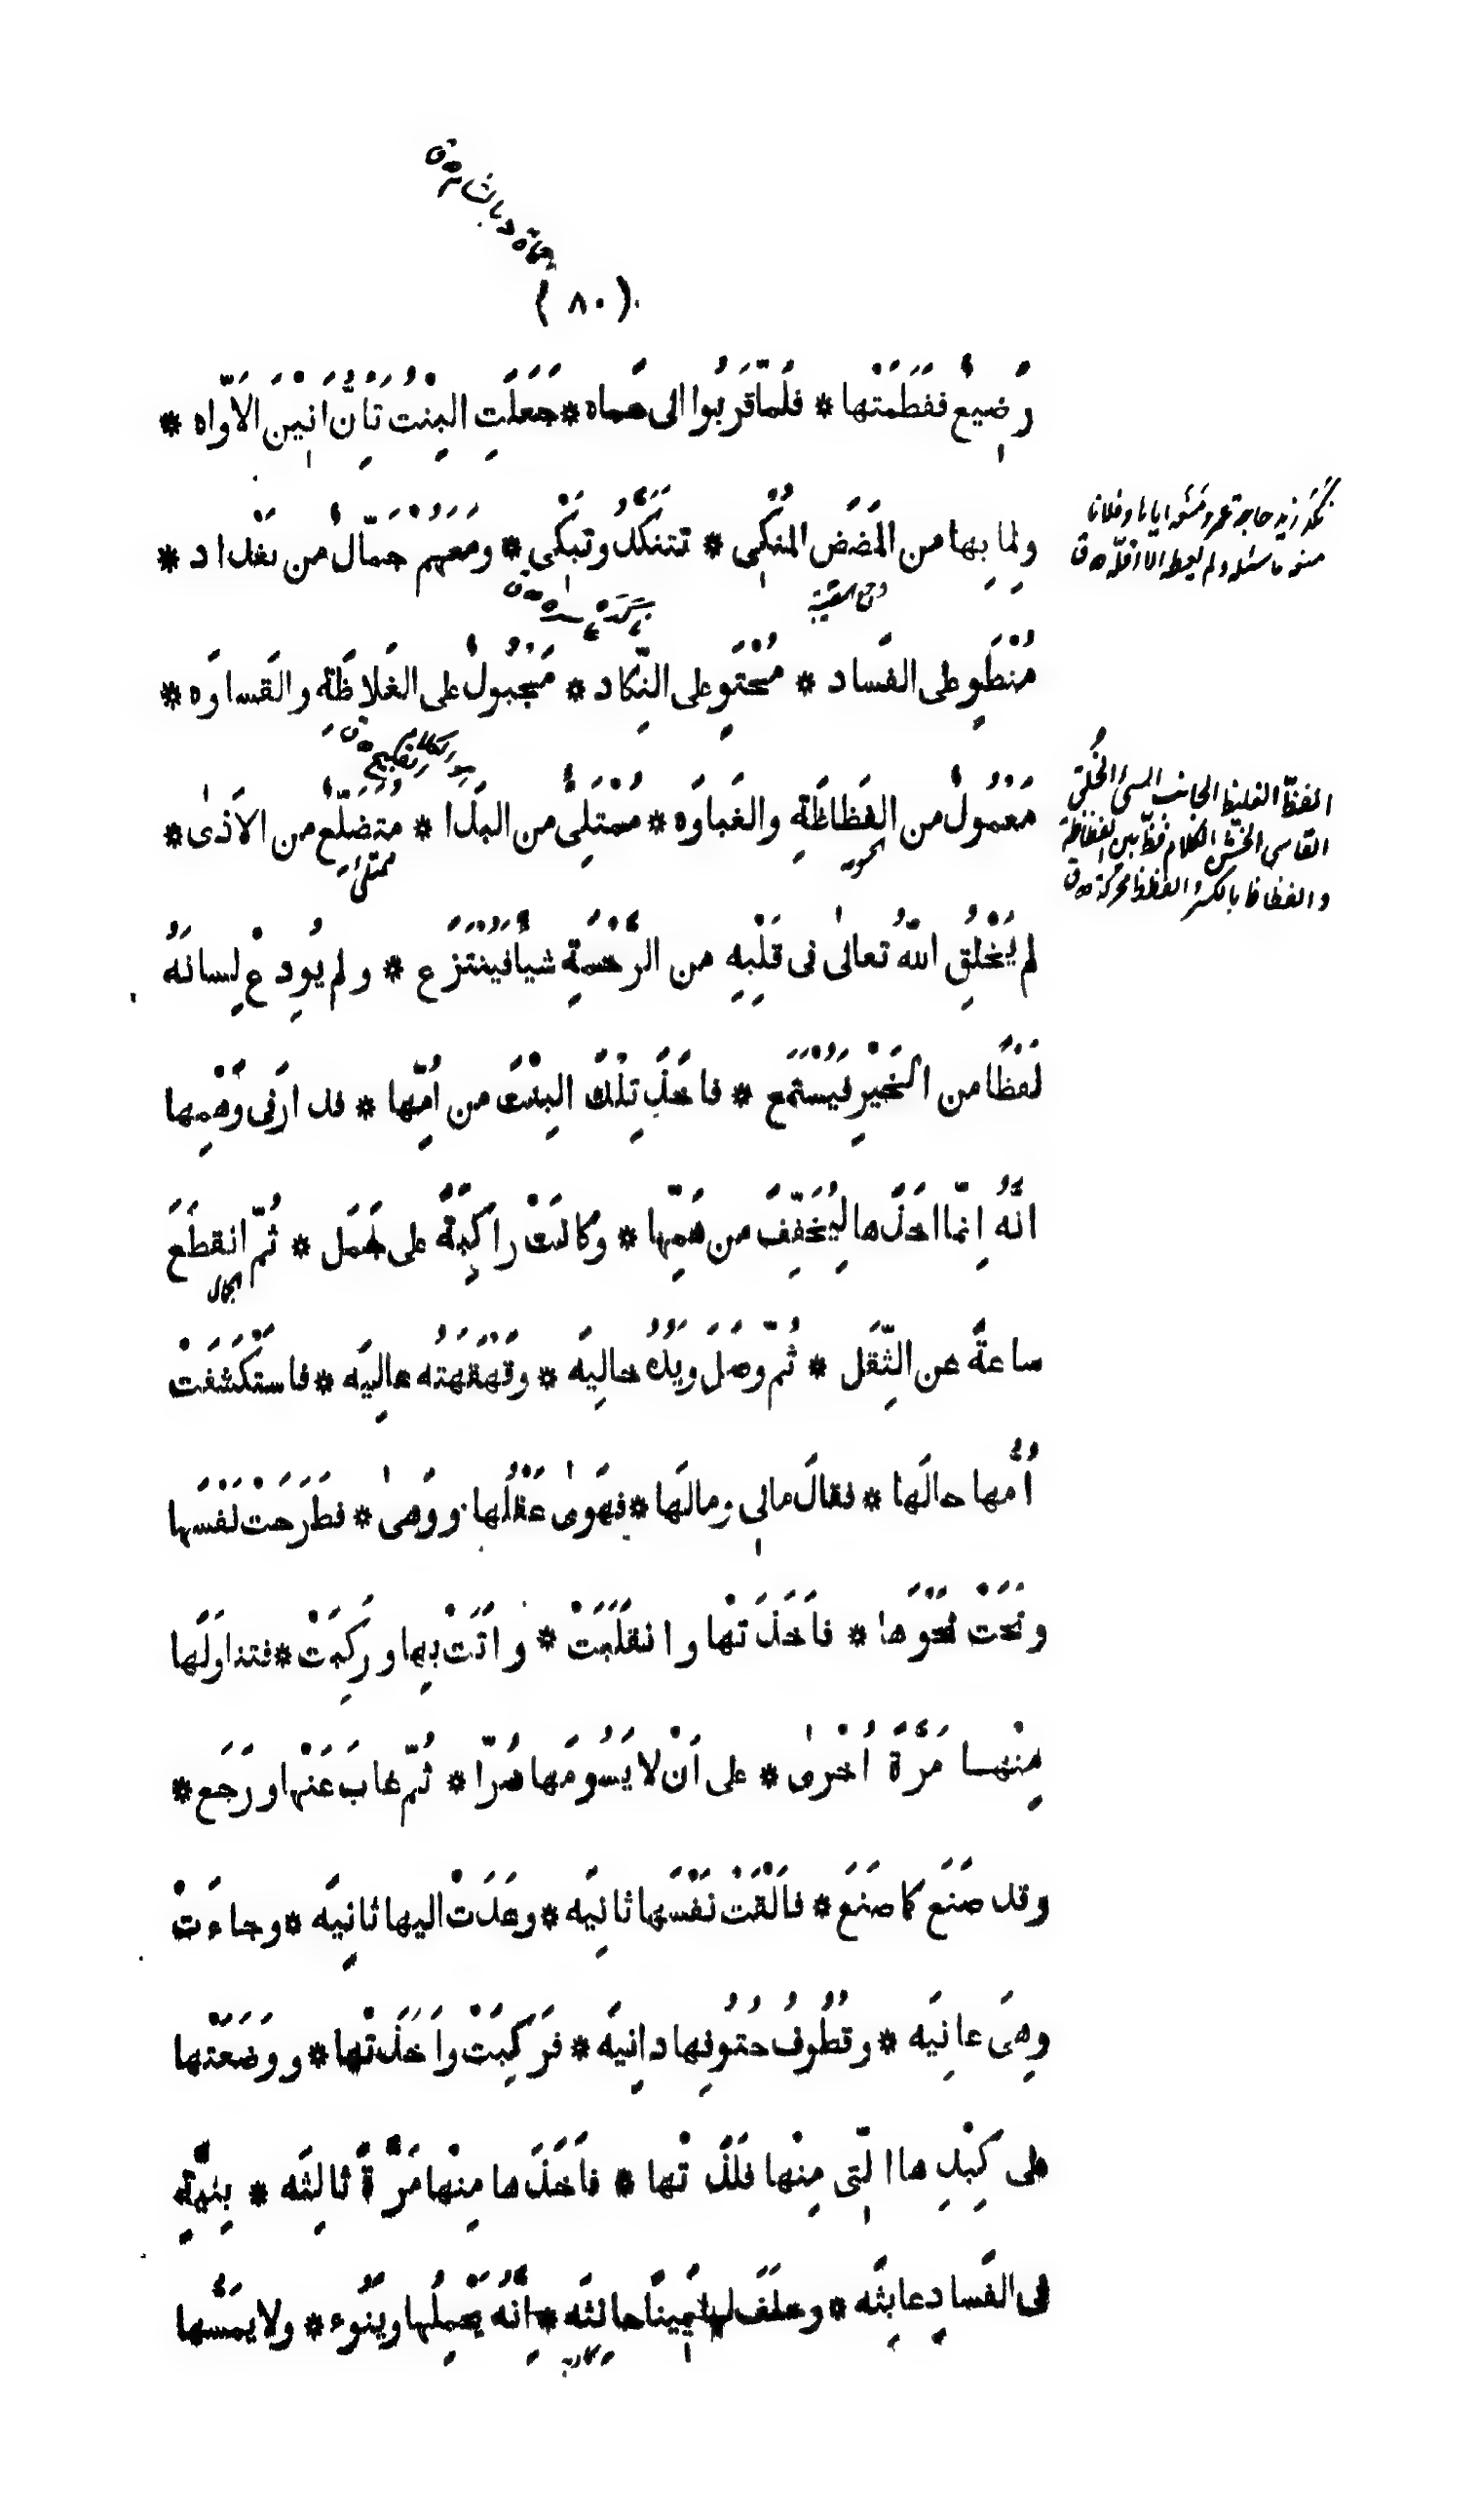 (٨٠)
رَضِيعٌ فَفَطَمَتْها * فَلَمّا قَرَبُوا الى حَماه * جَعَلَتِ البِنْتُ تَأِنُّ انِيْنَ الاَوّاه *
ولِما بِها من المَضَضِ المُنْكِي * تتنَكَّدُ وتبْكِي * ومَعَهُم جَمّالٌ من بَغْداد *
مُنْطَوٍ على الفَساد * مُحْتَوٍ على النِّكاد * مَجْبُولٌ على الغَلاظَةِ والقَساوَه *
مَعْمُولٌ من الفَظاظَةِ والغَباوَه * مُمْتَلِئٌ من البَذَا * مُتضَلِّعٌ من الاَذىٰ *
لم يَخْلُقِ اللّٰهُ تَعالىٰ فى قَلْبِهِ من الرَّحْمَةِ شيأً فيُنْتَزَع * ولم يُودِعْ لِسانَهُ
لَفظًا من الخَيْرِ فيُسْتَمَع * فاخَذَ تِلْكَ البِنْتَ من اُمِّها * فدارَ فى وَهْمِها
انَّهُ اِنّما اخَذَها لِيُخَفِّفَ من هَمِّها * وكانَتْ راكِبَةً على جَمَل * ثُمّ انقطَعَ
ساعةً عن الثِّقَل * ثُمّ وصَلَ ويَدُهُ خالِيَه * وقَهْقَهَتُه عالِيَه * فاستَكْشَفَتْ
اُمُّها حالَها * فقالَ مالى ومالَها * فهَوىٰ عَقْلُها ووَهىٰ * فطَرَحَتْ نَفْسَها
ونَحَتْ نَحْوَها * فاَخَذَتْها وانقلَبَتْ * واتَتْ بِها ورَكِبَتْ * فتناوَلَها
مِنْها مَرَّةً اُخْرىٰ * على اَنْ لا يَسُومَها ضُرّا * ثُمّ غابَ عَنْها ورَجَع *
وقد صَنَع كما صَنَع * فاَلْقَتْ نَفْسَها ثانِيَه * وعَدَتْ اليها ثانِيَه * وجاءَتْ
وهِىَ عانِيَه * وقُطُوفُ حُتُوفِها دانِيَه * فرَكِبَتْ واَخَذَتْها * ووضَعَتْها
على كِبْدِها الّتِى مِنْها فَلَذَتْها * فاَخَذَها مِنْها مَرَّةً ثالِثَه * بِنِيَّةٍ
فى الفَسادِ عابِثَه * وحلَفَ لها يَمِيناً حانِثَه * اِنَّهُ يَحْمِلُها ويَنُوء * ولا يمَسُّها